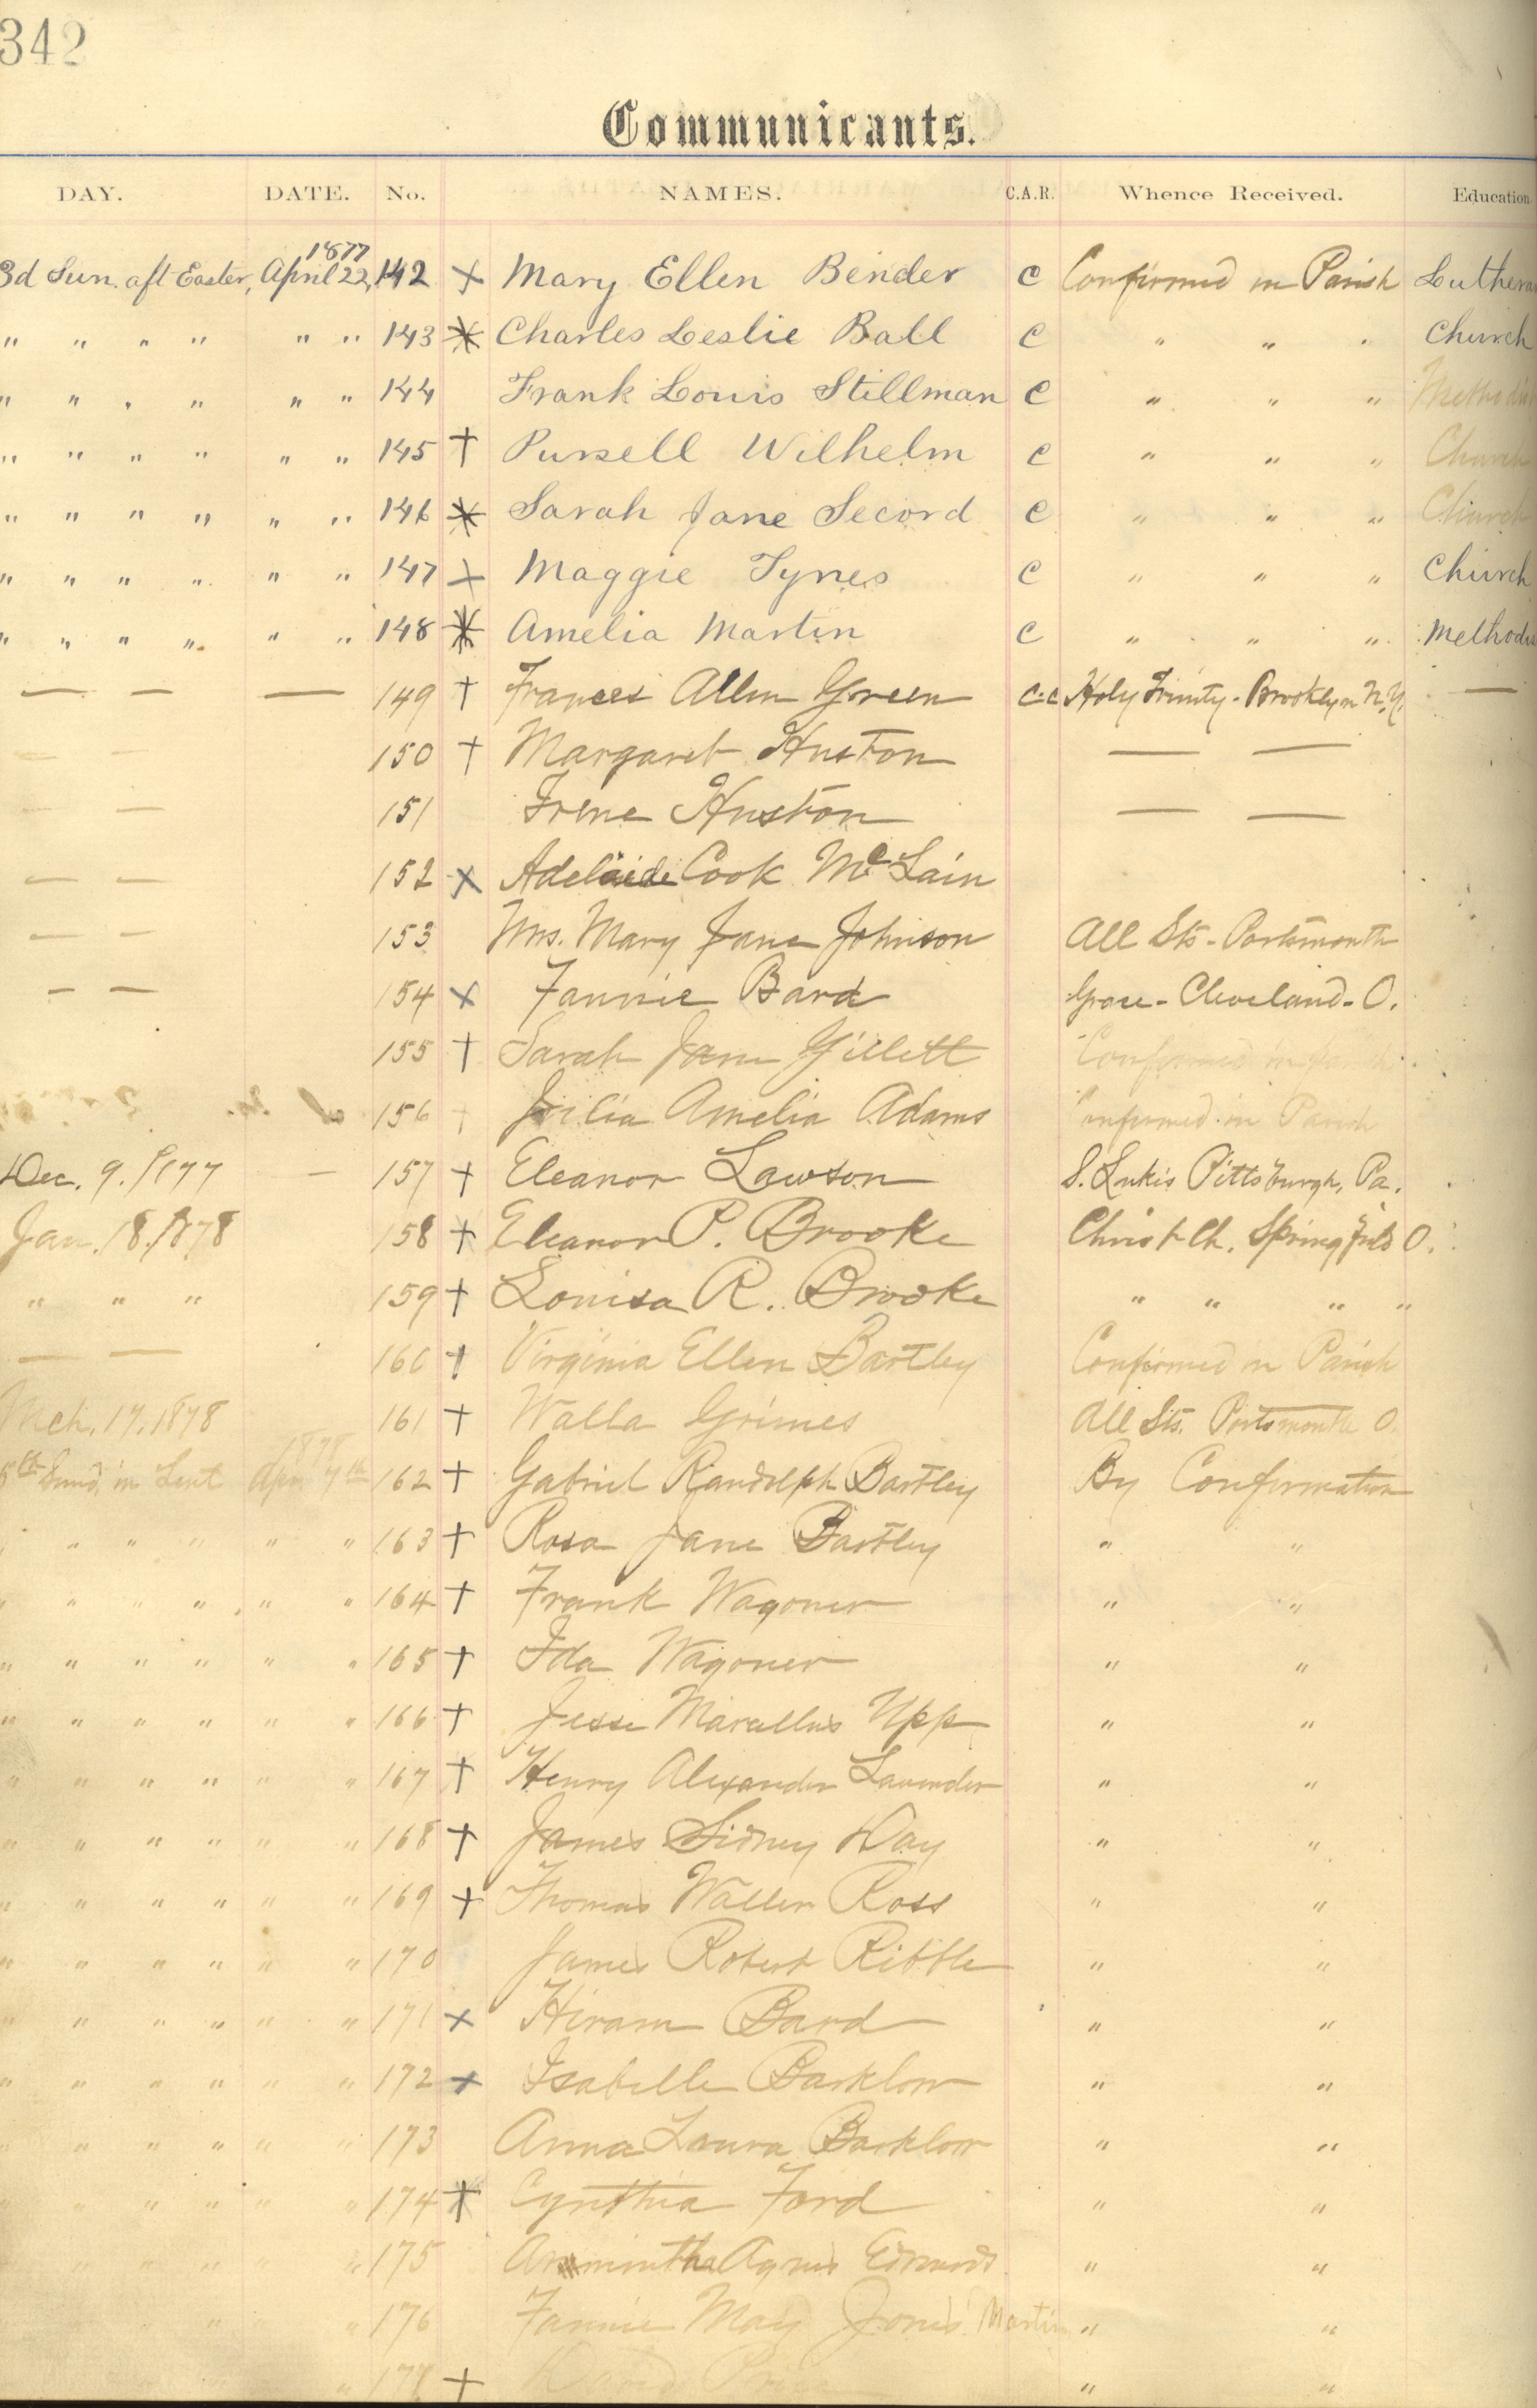 342
Communicants.
DAY. DATE. No. NAMES. C.A.R. Whence Received. Education
1877
3d Sun. aft Easter, April 22, 142 × Mary Ellen Bender C Confirmed in Parish Luthera
" " " " " " 143 * Charles Leslie Ball C " " " Church
" " " " " " 144 Frank Louis Stillman C " " " Methodist
" " " " " " 145 † Pursell Wilhelm C " " " Church
" " " " " " 146 * Sarah Jane Secord C " " " Church
" " " " " " 147 × Maggie Tynes C " " " Church
" " " " " " 148 * Amelia Martin C " " " Methodis
— — — 149 † Frances Allen Green C.C Holy Trinity - Brooklyn N.Y. —
— 150 † Margaret Huston — —
— — 151 Irene Huston — —
— — 152 × Adelaide Cook McLain
— — 153 Mrs. Mary Jane Johnson All Sts - Portsmouth
— — 154 × Fannie Bard Grace - Cleveland - O.
155 † Sarah Jane Gillett Confirmed in parish
156 † Julia Amelia Adams Confirmed in Parish
Dec. 9. 1877 — 157 † Eleanor Lawson S. Lukes Pittsburgh, Pa.
Jan. 18. 1878 158 † Eleanor P. Brooke Christ Ch. Springfield O.
" " " 159 † Louisa R. Brooke " " " "
— — 160 † Virginia Ellen Bartley Confirmed in Parish
Mch. 17. 1878 161 † Walla Grimes All Sts. Portsmouth O.
1878
5th Sund. in Lent Apr. 7th 162 † Gabriel Randolph Bartley By Confirmation
" " " " " " 163 † Rosa Jane Bartley " "
" " " " " " 164 † Frank Wagoner " "
" " " " " " 165 † Ida Wagoner " "
" " " " " " 166 † Jesse Marcellus Upp " "
" " " " " " 167 † Henry Alexander Lavender " "
" " " " " " 168 † James Sidney Day " "
" " " " " " 169 † Thomas Waller Ross " "
" " " " " " 170 James Robert Ribble " "
" " " " " " 171 × Hiram Bard " "
" " " " " " 172 × Isabelle Barklow " "
" " " " " " 173 Anna Laura Barklow " "
" " " " " " 174 † Cynthia Ford " "
" " " " " " 175 Agnes Edwards " "
" " 176 Fannie May Jones Martin " "
" 177 † David " "